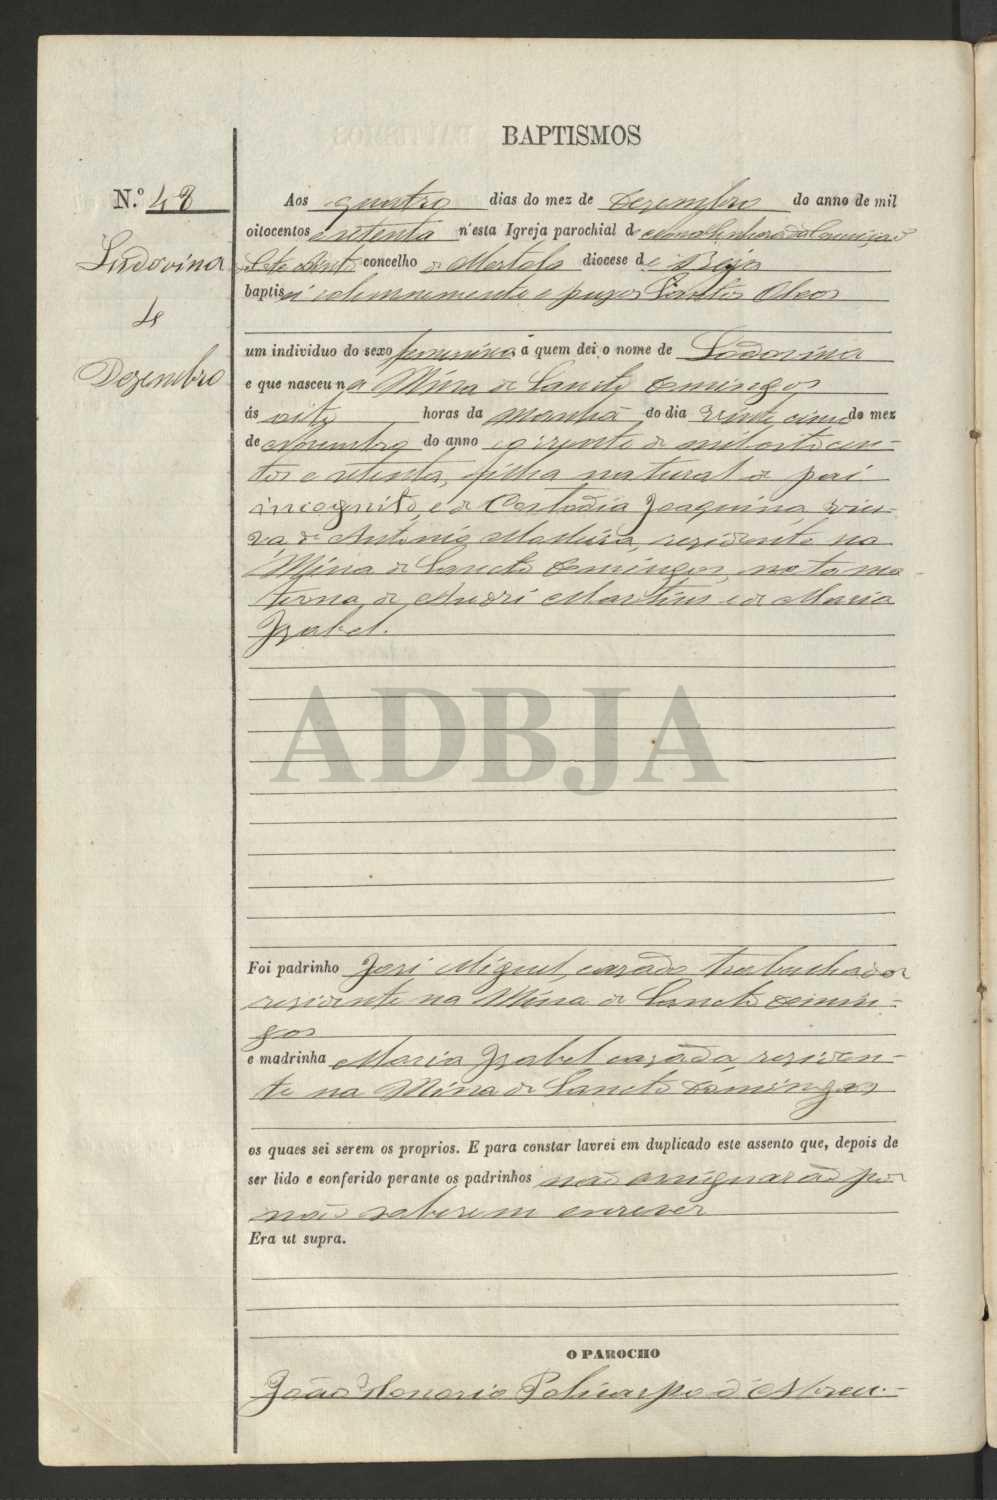 BAPTISMOS
N.º 48
Ludovina
4
Dezembro
Aos quatro dias do mez de Dezembro do anno de mil
oitocentos e setenta n'esta Igreja parochial de Nossa Senhora da Conceição
concelho de Mertola diocese de Beja
baptisei solemnemente e puz os Santos Oleos
um individuo do sexo feminino a quem dei o nome de Ludovina
e que nasceu na Mina de Sancto Domingos
ás oito horas da manhã do dia vinte cinco do mez
de Novembro do anno corrente de mil oitocen-
tos e setenta, filha natural de pai
incognito, e de Custodia Joaquina, viu-
va de Antonio Madeira, residente na
Mina de Sancto Domingos, neta ma-
terna de André Martins e de Maria
Izabel.
ADBJA
Foi padrinho José Miguel, casado, trabalhador
residente na Mina de Sancto Domin-
gos
e madrinha Maria Izabel casada, residen-
te na Mina de Sancto Domingos
os quaes sei serem os proprios. E para constar lavrei em duplicado este assento que, depois de
ser lido e conferido perante os padrinhos não assignarão por
não saberem escrever
Era ut supra.
O PAROCHO
João Honorio Policarpo d'Abreu.-